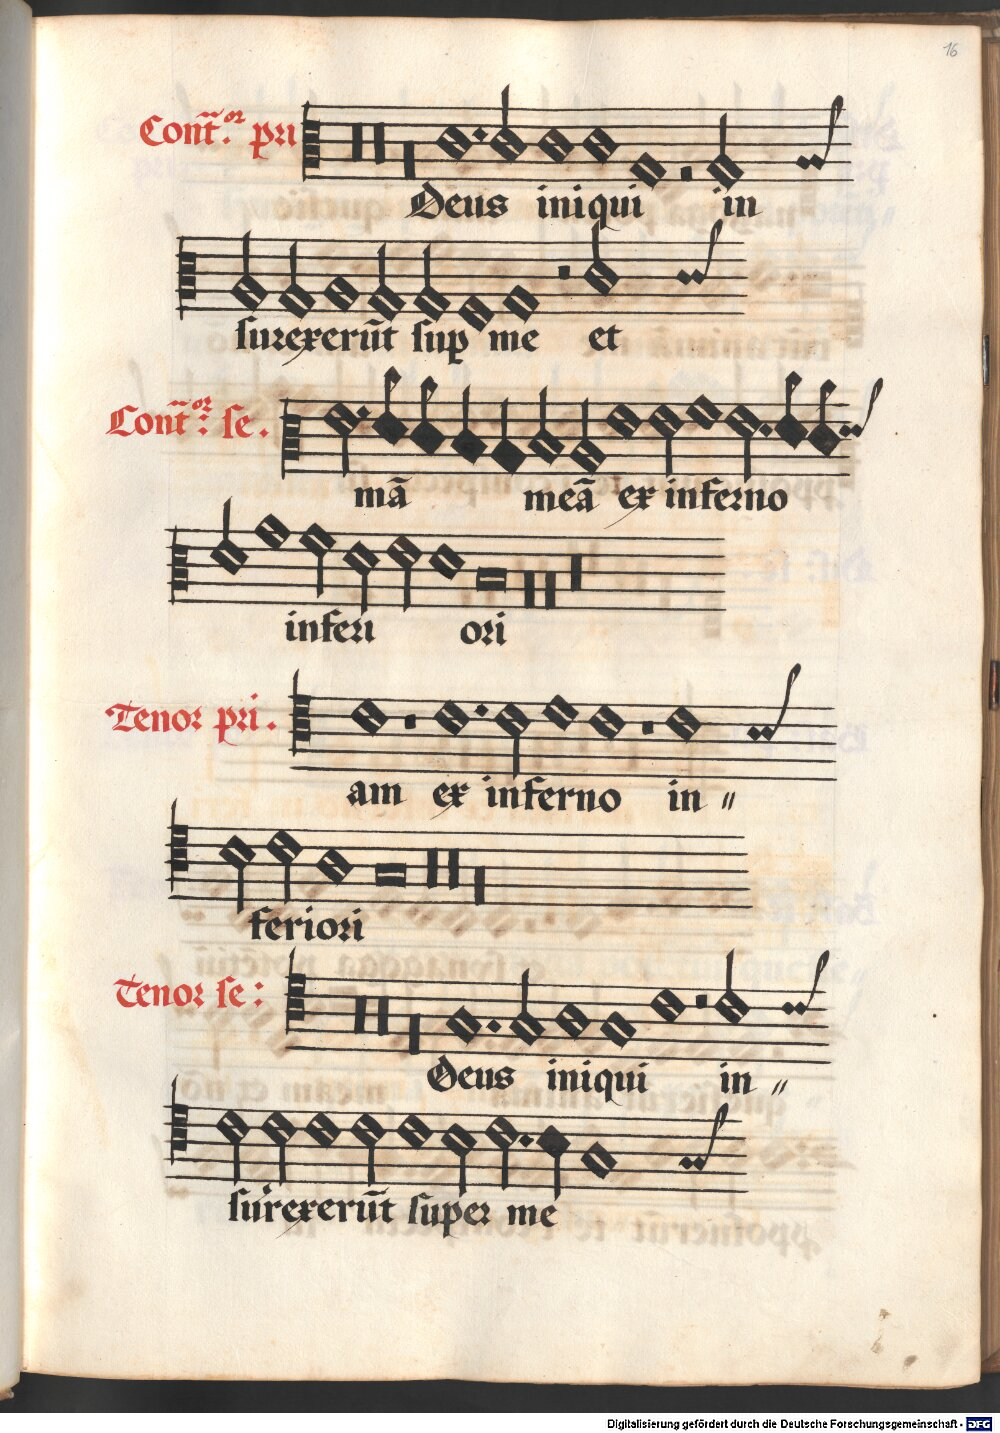 16
Cont̃.or pri
Deus iniqui in
surexerũt sup me et
Cont̃or: se.
mã meã ex inferno
inferi ori
Tenor pri.
am ex inferno in〃
feriori
Tenor se:
Deus iniqui in〃
surexerũt super me
Digitalisierung gefördert durch die Deutsche Forschungsgemeinschaft - DFG